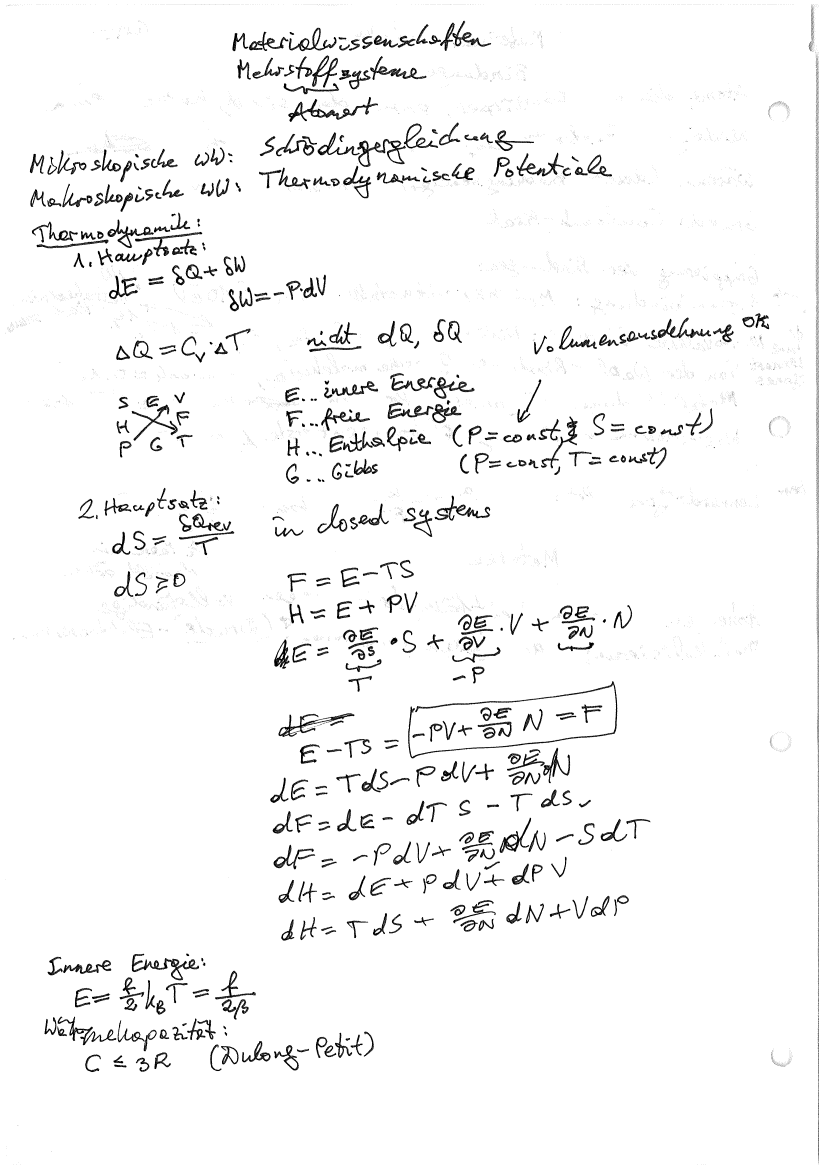 Materialwissenschaften
Mehrstoffsysteme
Atomart
Mikroskopische WW: Schrödingergleichung
Makroskopische WW: Thermodynamische Potentiale
Thermodynamik:
1. Hauptsatz:
dE = δQ + δW
δW = -P·dV
ΔQ = C_V·ΔT nicht dQ, δQ
Volumensausdehnung OK
S E V
H F
P G T
E... innere Energie
F... freie Energie
H... Enthalpie (P = const, S = const)
G... Gibbs (P = const, T = const)
2. Hauptsatz:
dS = δQ_rev / T in closed systems
dS ≥ 0
F = E - TS
H = E + PV
E = ∂E/∂S · S + ∂E/∂V · V + ∂E/∂N · N
T -P
dE =
E - TS = -PV + ∂E/∂N N = F
dE = TdS - PdV + ∂E/∂N dN
dF = dE - dT S - T dS
dF = -PdV + ∂E/∂N dN - SdT
dH = dE + PdV + dP V
dH = TdS + ∂E/∂N dN + VdP
Innere Energie:
E = f/2 k_B T = f/2β
Wärmekapazität:
C ≤ 3R (Dulong-Petit)